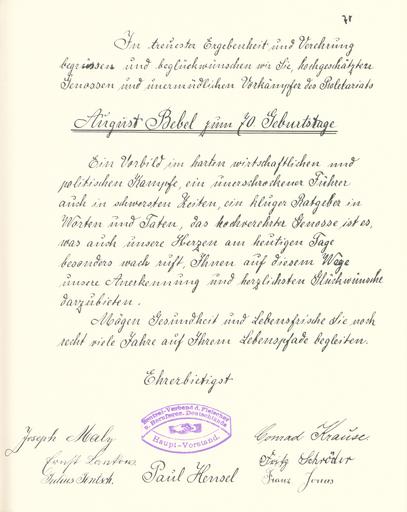 71
In treuester Ergebenheit und Verehrung
begrüssen und beglückwünschen wir Sie, hochgeschätzten
Genossen und unermüdlichen Vorkämpfer des Proletariats
August Bebel zum 70 Geburtstage
Ein Vorbild im harten wirtschaftlichen und
politischen Kampfe, ein unerschrockener Führer
auch in schwersten Zeiten, ein kluger Ratgeber in
Worten und Taten, das hochverehrter Genosse ist es,
was auch unsere Herzen am heutigen Tage
besonders wach ruft, Ihnen auf diesem Wege
unsere Anerkennung und herzlichsten Glückwünsche
darzubieten.
Mögen Gesundheit und Lebensfrische Sie noch
recht viele Jahre auf Ihrem Lebenspfade begleiten.
Ehrerbietigst
Zentral-Verband d. Fleischer
u. Berufsgen. Deutschlands
Haupt-Vorstand.
Joseph Maly
Conrad Krause.
Ernst
Fritz Schröder
Julius Jentsch.
Paul Hensel
Franz Jonas